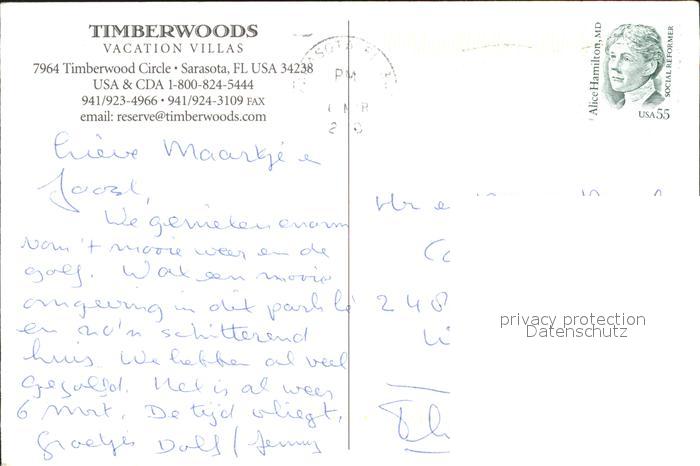 TIMBERWOODS
VACATION VILLAS
7964 Timberwood Circle • Sarasota, FL USA 34238
USA & CDA 1-800-824-5444
941/923-4966 • 941/924-3109 FAX
email: reserve@timberwoods.com
PM
Alice Hamilton, MD
SOCIAL REFORMER
USA 55
Lieve Maartje en
Joost,
We genieten enorm
van 't mooie weer en de
golf. Wat een mooie
omgeving in dit park
en zo'n schitterend
huis. We hebben al veel
gegolfd. Het is al weer
6 mrt. De tijd vliegt.
Groetjes Dolf / Jenny
privacy protection
Datenschutz